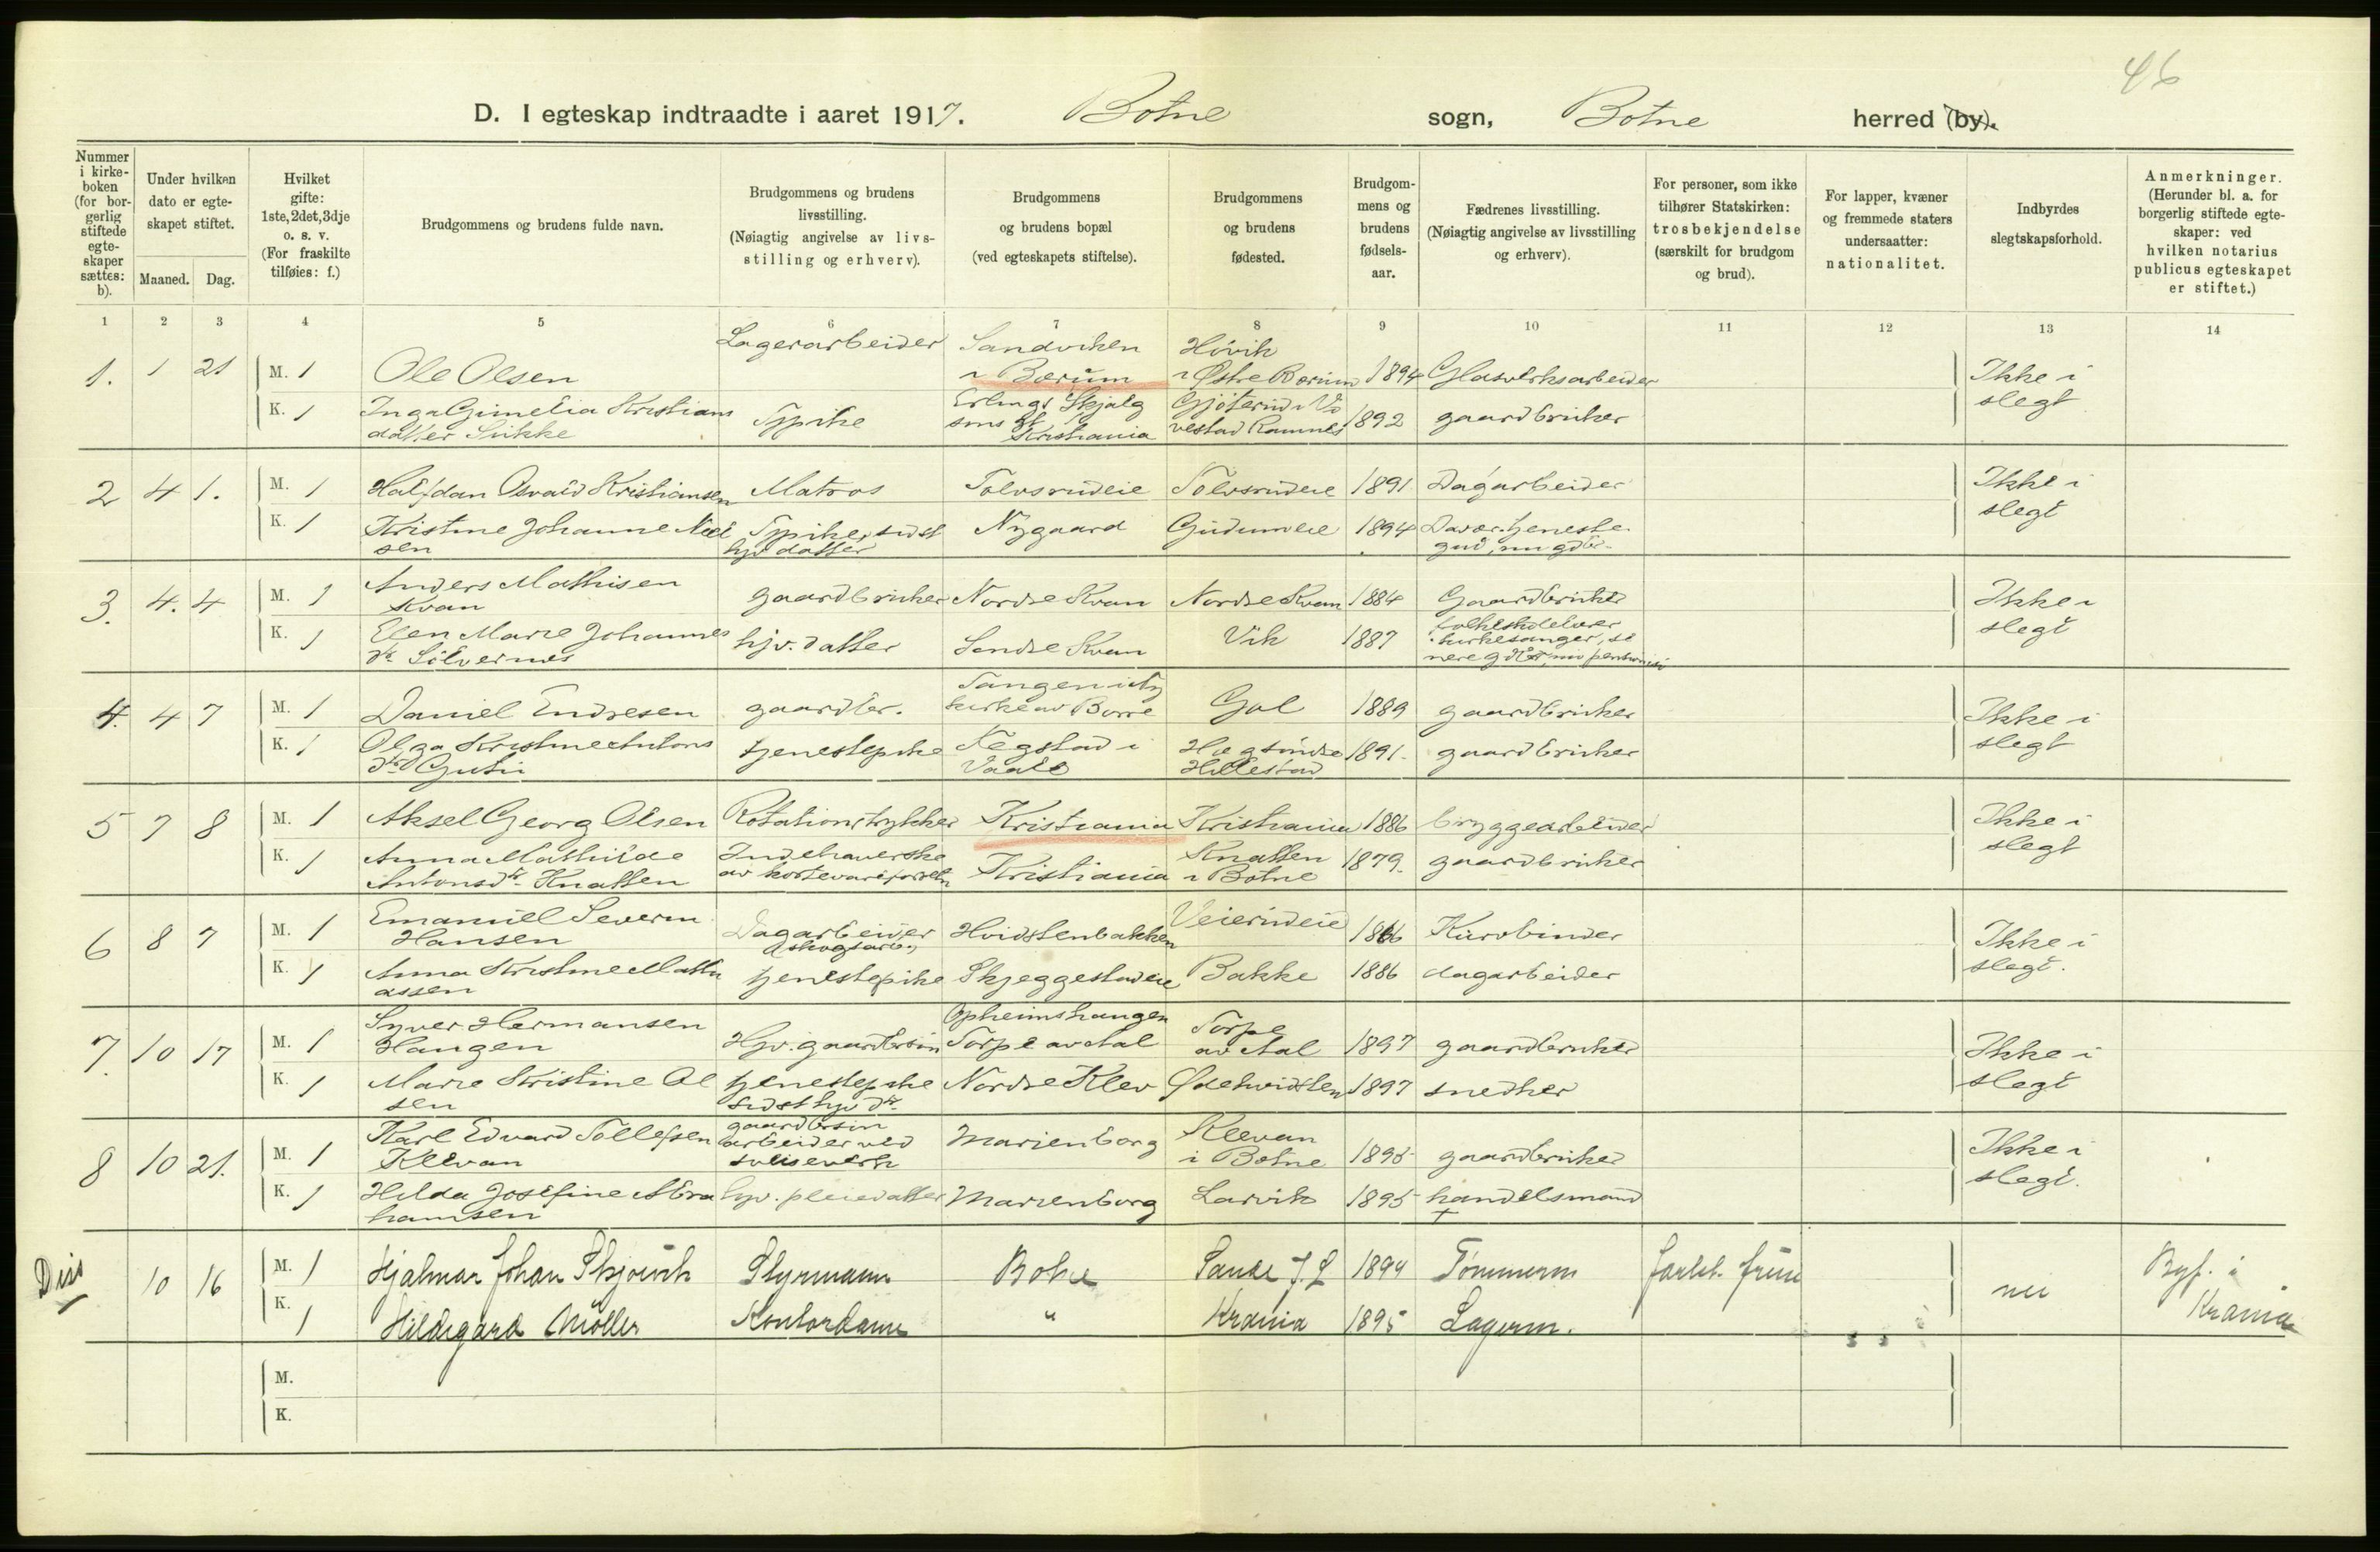 46
D. I egteskap indtraadte i aaret 1917. Botne sogn, Botne herred (by).
Nummer i kirke-boken (for bor-gerlig stiftede egte-skaper sættes: b).
Under hvilken dato er egte-skapet stiftet.
Maaned. Dag.
Hvilket gifte: 1ste, 2det, 3dje o. s. v. (For fraskilte tilføies: f.)
Brudgommens og brudens fulde navn.
Brudgommens og brudens livsstilling. (Nøiagtig angivelse av livs-stilling og erhverv).
Brudgommens og brudens bopæl (ved egteskapets stiftelse).
Brudgommens og brudens fødested.
Brudgom-mens og brudens fødsels-aar.
Fædrenes livsstilling. (Nøiagtig angivelse av livsstilling og erhverv).
For personer, som ikke tilhører Statskirken: trosbekjendelse (særskilt for brudgom og brud).
For lapper, kvæner og fremmede staters undersaatter: nationalitet.
Indbyrdes slegtskapsforhold.
Anmerkninger. (Herunder bl. a. for borgerlig stiftede egte-skaper: ved hvilken notarius publicus egteskapet er stiftet.)
1 2 3 4 5 6 7 8 9 10 11 12 13 14
1. 1 21 M. 1 Ole Olsen Lagerarbeider Sandviken i Bærum Høvik i Østre Bærum 1894 Glasverksarbeider Ikke i slegt
K. 1 Inga Gimelia Kristians datter Sukke Typike Erlings Skjalg sons gt Kristiania vestad Ramnes 1892 gaardbruker
2 4 1. M. 1 Halfdan Osvald Kristiansen Matros Tolvsrudeie Tolvsrudeie 1891 Dagarbeider Ikke i slegt
K. 1 Kristine Johanne Niel sen Typike, sidst hjv datter Nygaard Gudumeie 1894 Daver. tjeneste gut, nu gdbr.
3. 4. 4 M. 1 Anders Mathisen Kvan gaardbruker Nordre Kvan Nordre Kvan 1884 Gaardbruker Ikke i slegt
K. 1 Elen Marie Johannes dr. Sölvernes hjv. datter Søndre Kvan Vik 1887 folkeskolelærer kirkesanger, se nere gdbr, nu pensionist
4. 4 7 M. 1 Daniel Endresen gaardbr. Tangen i Ny kirke av Borre Gal 1889 gaardbruker Ikke i slegt
K. 1 Olga Kristine Antons dtr Gutu tjenestepike Fegstad i Vaale Hægsundre Hillestad 1891. gaardbruker
5 7 8 M. 1 Aksel Georg Olsen Rotationstrykker Kristiania Kristiania 1886 bryggearbeider Ikke i slegt
K. 1 Anna Mathilde Antonsdr. Knatten Indehaverske av kortevareforretn Kristiania Knatten i Botne 1879. gaardbruker
6 8 7 M. 1 Emanuel Severin Hansen Dagarbeider (skogsarb.) Hvidstenbakken Veierudeie 1866 Kurvbinder Ikke i slegt.
K. 1 Anna Kristine Mathi assen tjenestepike Skjeggestadeie Bakke 1886 dagarbeider
7. 10 17 M. 1 Syver Hermansen Haugen Hjv. gaardbrsøn Opheimshaugen Torpe av Aal Torpe av Aal 1897 gaardbruker Ikke i slegt
K. 1 Marie Kristine Ol sen tjenestepike sidst hjv dr. Nordre Klev Ødehvidsten 1897 snedker
8 10 21. M. 1 Karl Edvard Tollefsen Klevan gaardbrsøn arbeider ved sulisverk Marienborg Klevan i Botne 1893 gaardbruker Ikke i slegt.
K. 1 Hilda Josefine Abra hamsen hjv. pleiedatter Marienborg Larvik 1895 handelsmand +
Diss 10 16 M. 1 Hjalmar Johan Skjøvik Styrmann Botne Sande J. L 1894 Tømmerm nei Byf. i Krania
K. 1 Hildegard Møller Kontordame " Krania 1895 Lagerm.
M.
K.